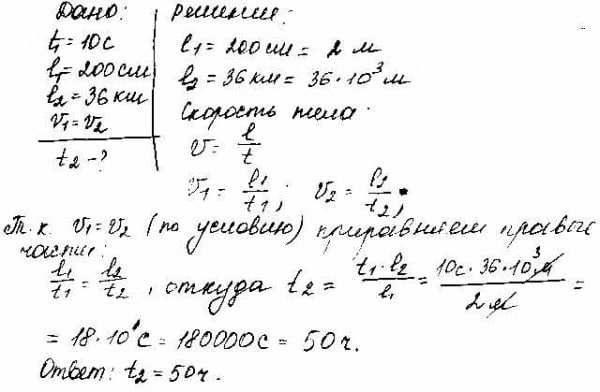 Дано:
t₁ = 10 с
l₁ = 200 см
l₂ = 36 км
v₁ = v₂
t₂ - ?
Решение:
l₁ = 200 см = 2 м
l₂ = 36 км = 36·10³ м
Скорость тела:
v = l/t
v₁ = l₁/t₁; v₂ = l₂/t₂,
Т.к. v₁ = v₂ (по условию) приравняем правые
части:
l₁/t₁ = l₂/t₂, откуда t₂ = t₁·l₂/l₁ = 10с·36·10³м/2м =
= 18·10⁴ с = 180000 с = 50 ч.
Ответ: t₂ = 50 ч.